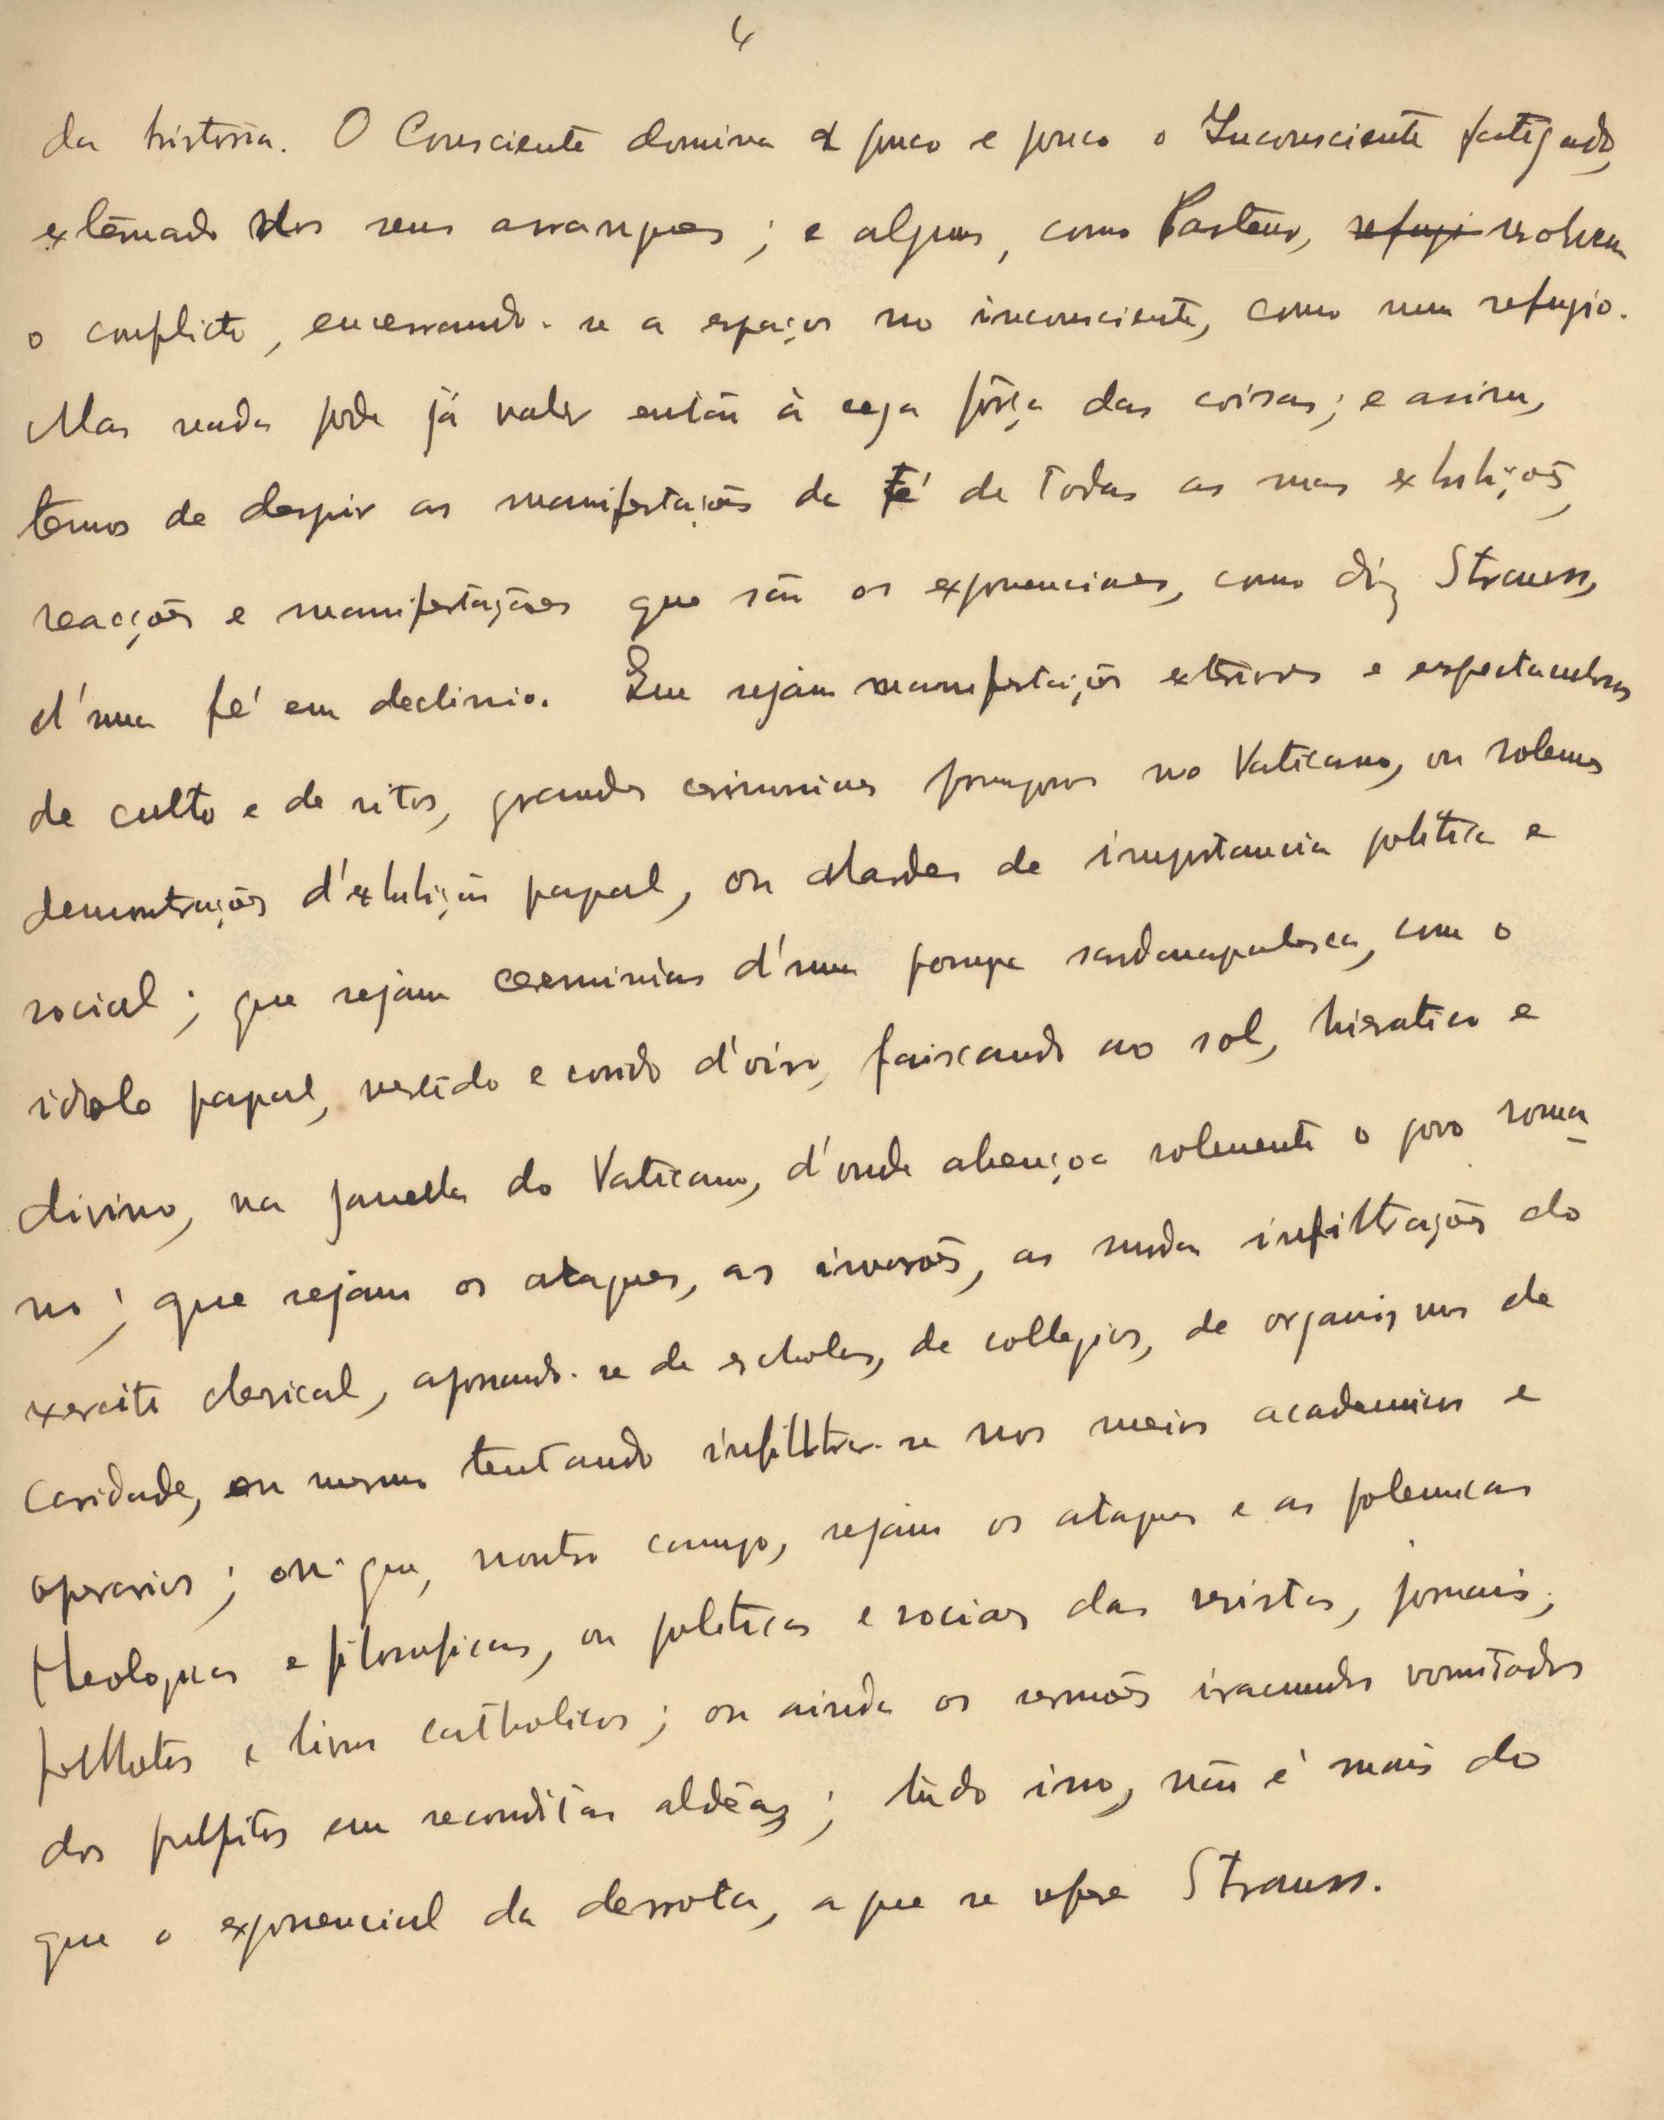 4
da historia. O Consciente domina a pouco e pouco o Inconsciente fatigado,
extenuado dos seus arranques; e alguns, como Pasteur, refugi resolvem
o conflicto, encerrando-se a espaços no inconsciente, como num refugio.
Mas nada pode já valer então à cega fôrça das coisas; e assim,
temos de despir as manifestações da fé de todas as suas exhibições,
reacções e manifestações que são os exponenciaes, como diz Strauss,
d'uma fé em declinio. Que sejam manifestações exteriores e espectaculosas
de culto e de ritos, grandes cerimonias pomposas no Vaticano, ou solemnes
demonstrações d'exhibição papal, ou alardes de importancia politica e
social; que sejam ceremonias d'uma pompa sardanapalesca, com o
idolo papal, vestido e c'roado d'oiro, faiscando ao sol, hieratico e
divino, na janella do Vaticano, d'onde abençoa solemente o povo roma
no; que sejam os ataques, as invasões, as mudas infiltrações do
exercito clerical, apossando-se de escholas, de collegios, de organismos de
caridade, ou mesmo tentando infilttrar-se nos meios academicos e
operarios; ou que, noutro campo, sejam os ataques e as polemicas
theologicas e filosoficas, ou politicas e sociaes das revistas, jornais,
folhetos e livros catholicos; ou ainda os sermões iracundos vomitados
dos pulpitos em reconditas aldêas; tudo isso, não é mais do
que o exponencial da derrota, a que se refere Strauss.